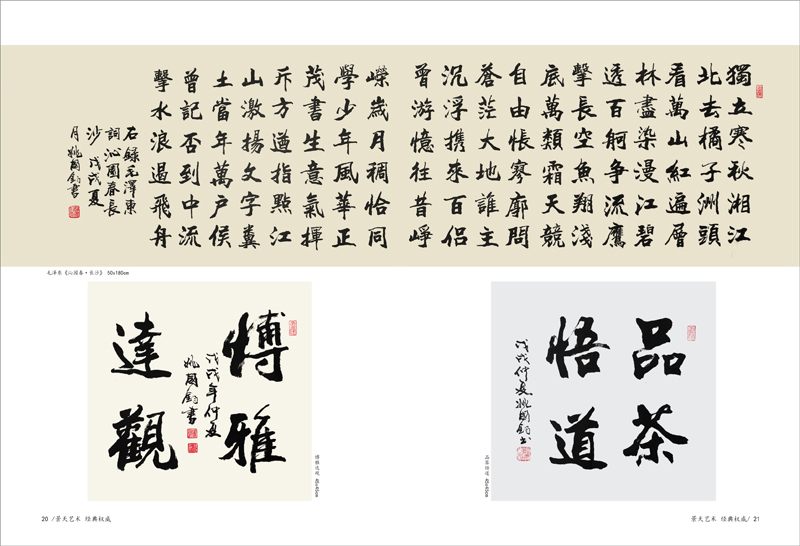 獨立寒秋湘江
北去橘子洲頭
看萬山紅遍層
林盡染漫江碧
透百舸争流鷹
擊長空魚翔淺
底萬類霜天競
自由悵寥廓問
蒼茫大地誰主
沉浮携來百侣
曾游憶往昔崢
嶸歲月稠恰同
學少年風華正
茂書生意氣揮
斥方遒指點江
山激揚文字糞
土當年萬户侯
曾記否到中流
擊水浪遏飛舟
右録毛澤東
詞沁園春長
沙 戊戌夏
月 姚國鈞書
毛泽东《沁园春·长沙》 50x180cm
愽雅
達觀
戊戌年仲夏
姚國鈞書
博雅达观 45x45cm
品茶
悟道
戊戌仲夏姚國鈞书
品茶悟道 45x45cm
20 /景天艺术 经典权威
景天艺术 经典权威/ 21